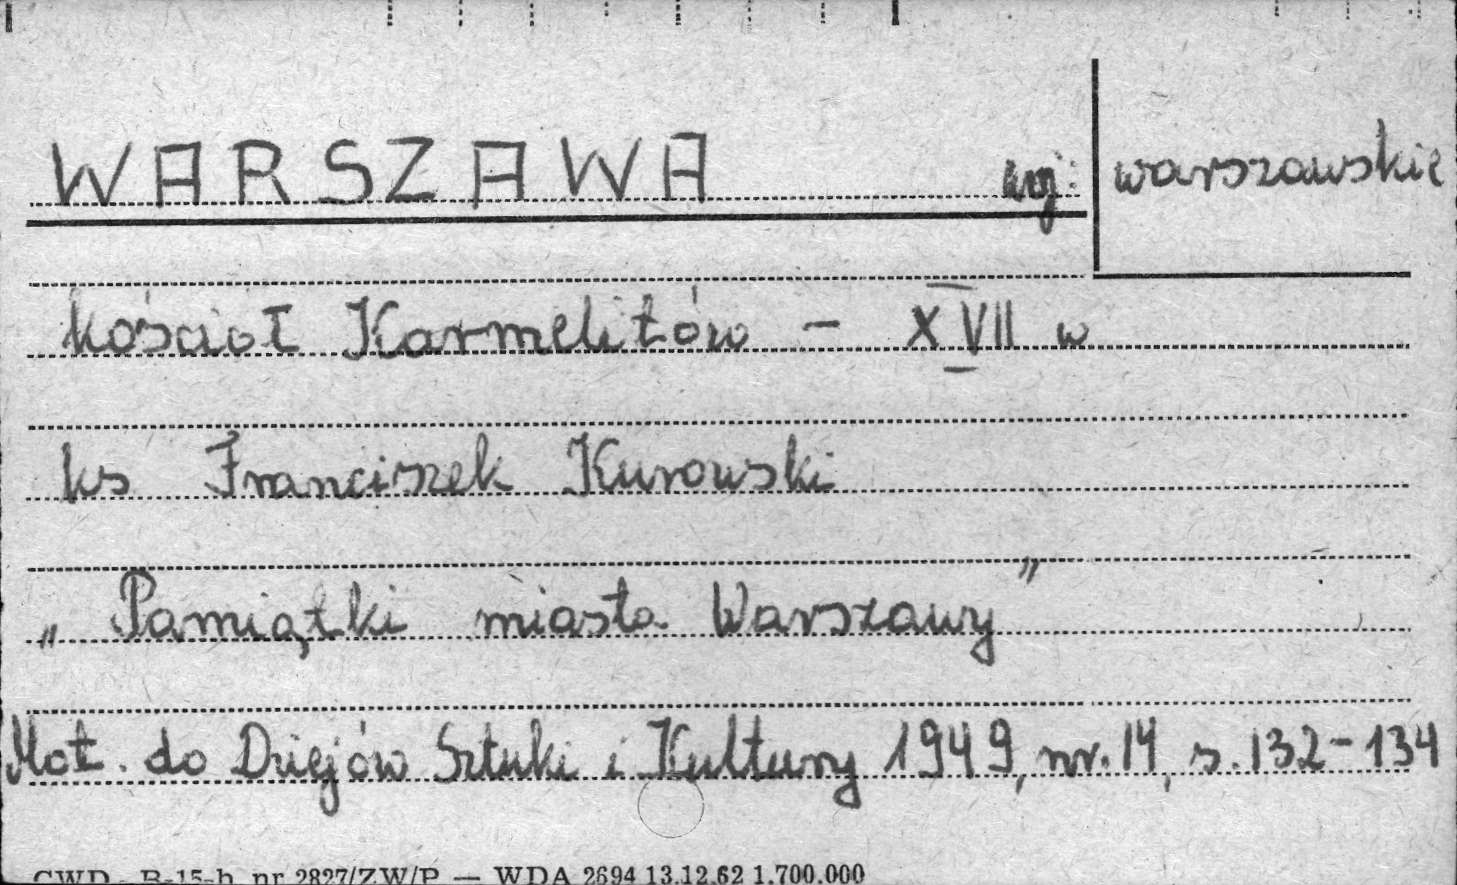 WARSZAWA woj: warszawskie
kościół Karmelitów - XVII w
ks Franciszek Kurowski
„Pamiątki miasta Warszawy”
Mat. do Dziejów Sztuki i Kultury 1949, nr. 14, s. 132-134
CWD - B-15-h nr 2827/ZW/P — WDA 2694 13.12.62 1.700.000